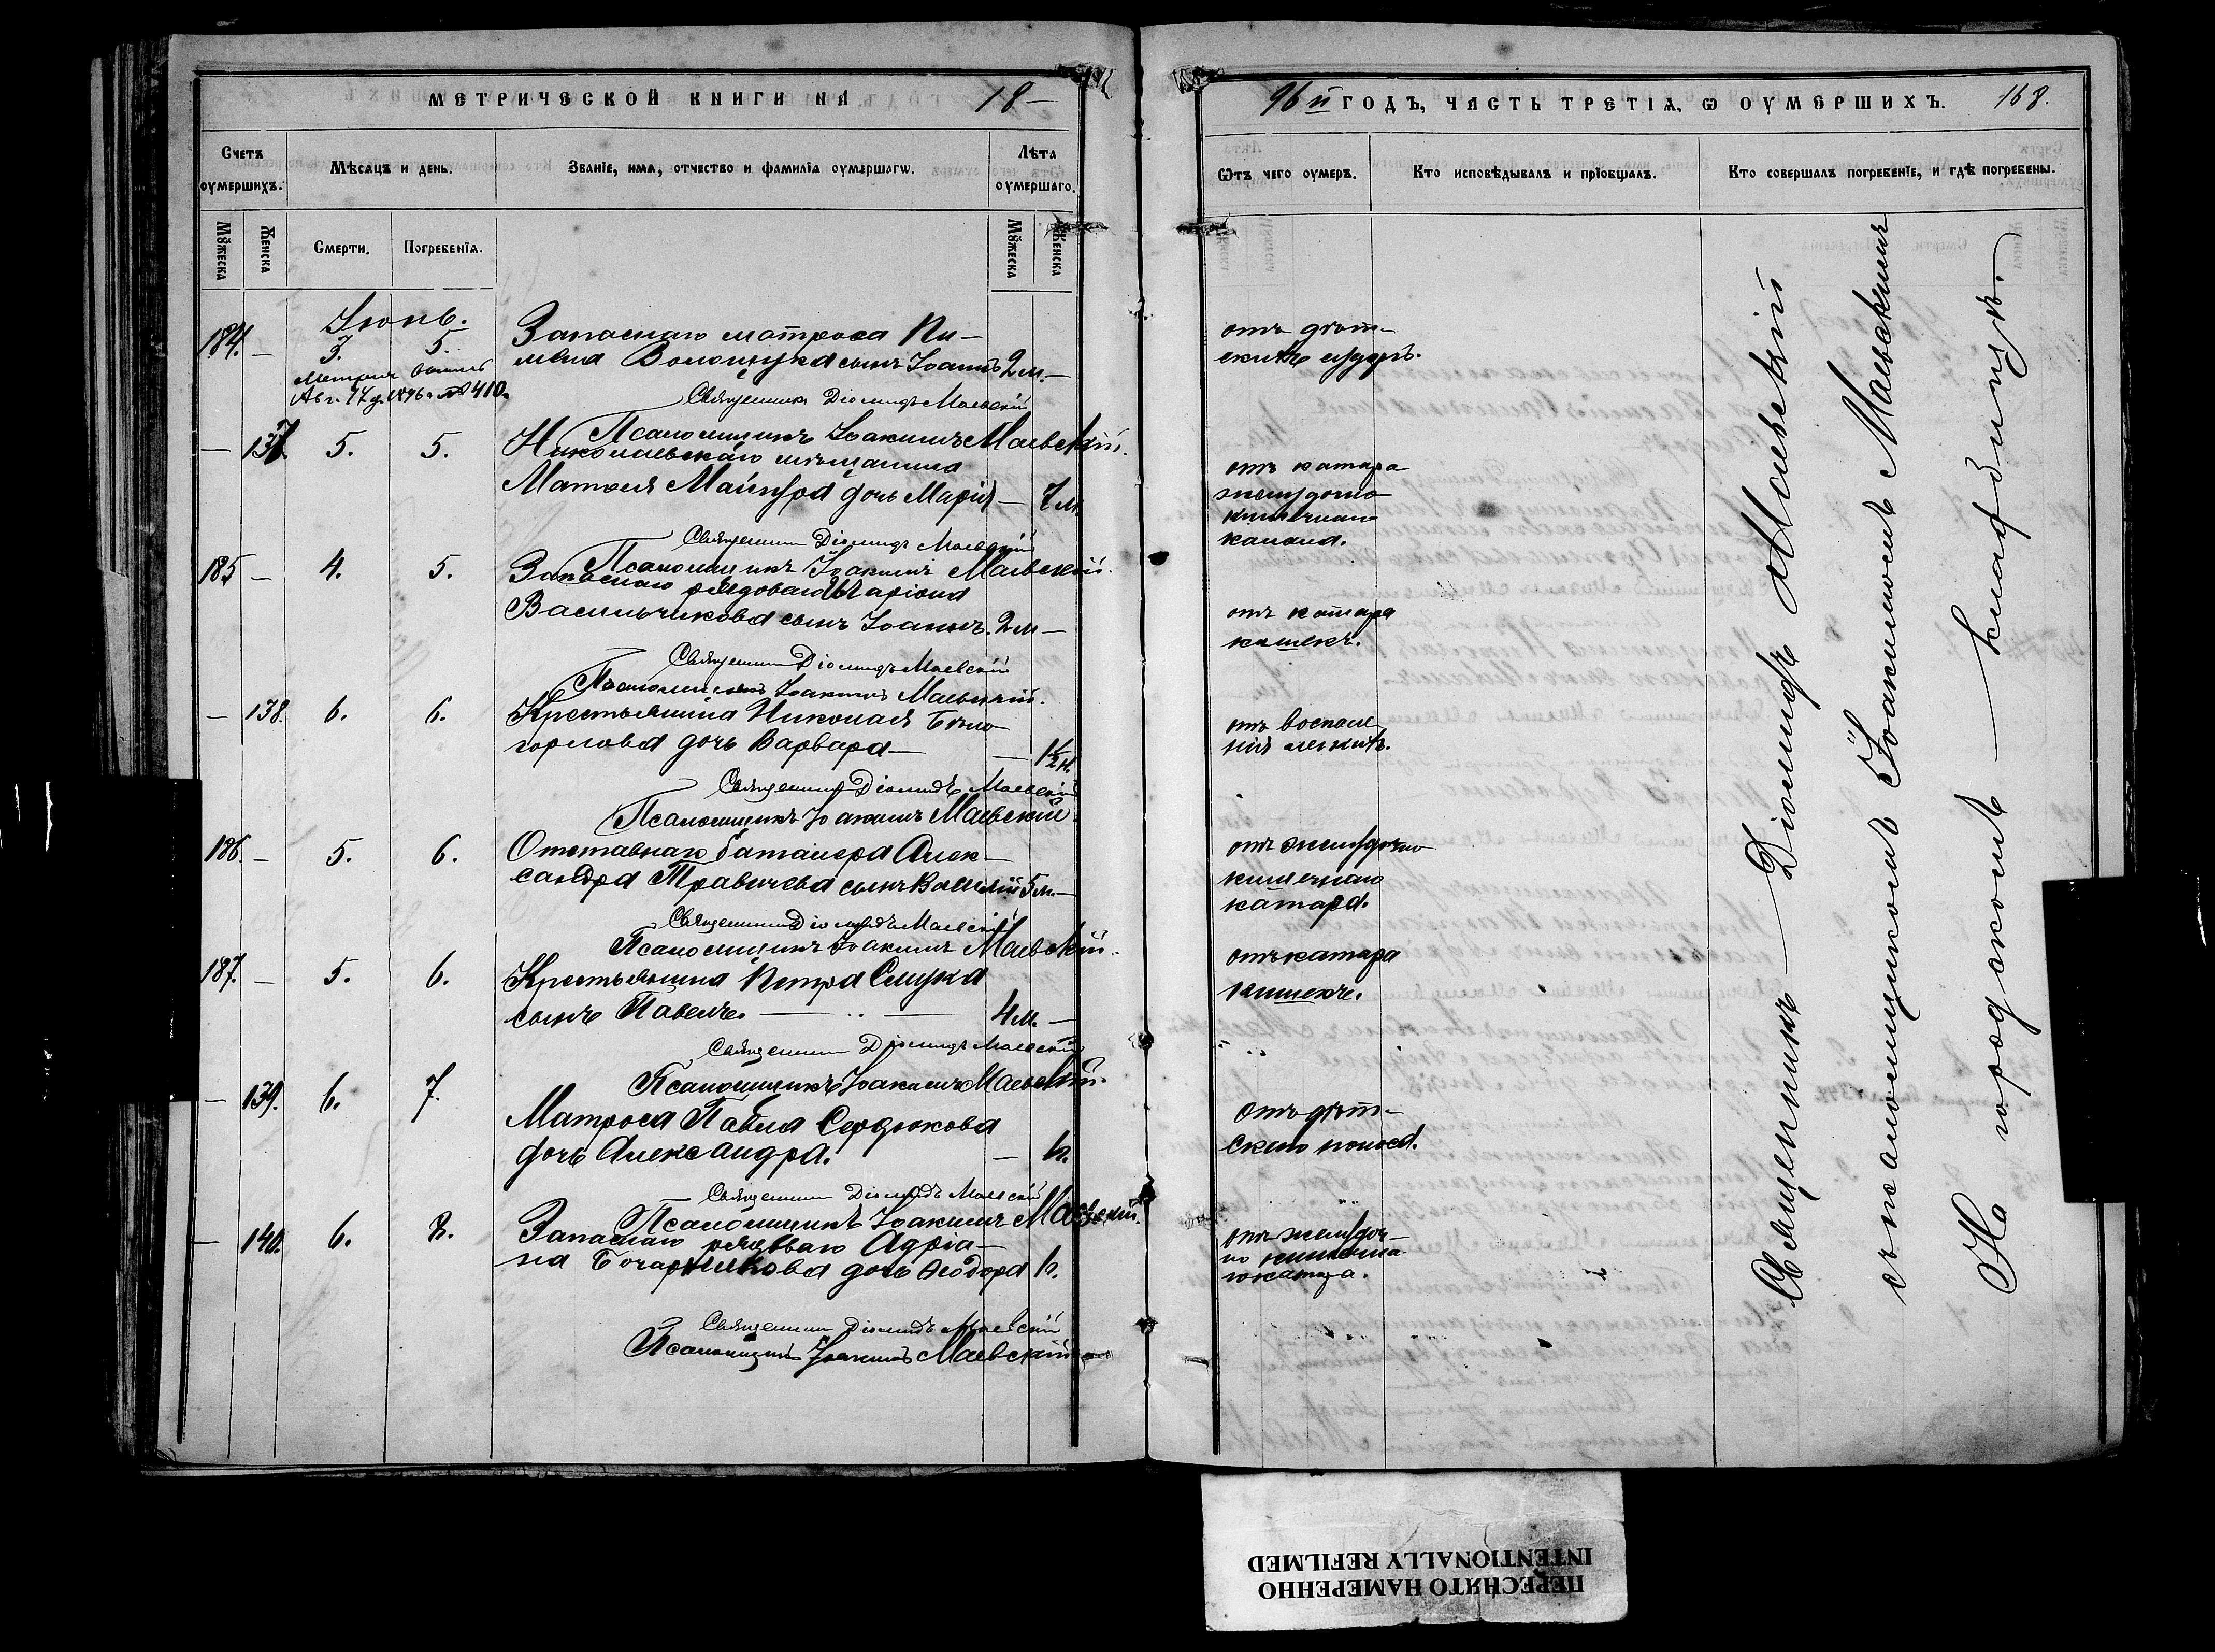 МЕТРИЧЕСКОЙ КНИГИ НА 18-
Счетъ оумершихъ.
Мѣсяцъ и день.
Званіе, имя, отчество и фамилія оумершагѡ.
Лѣта оумершаго.
Мꙋжеска
Женска
Смерти.
Погребенія.
Мꙋжеска
Женска
Іюнь.
184. - 3. 5. Запаснаго матроса Пи-
мена Волощука сынъ Іоаннъ 2 м. -
Авг. 17 д. 1896 г. № 410.
Священникъ Діомидъ Маевскій
Псаломщикъ Іоакимъ Маевскій.
- 137 5. 5. Николаевскаго мѣщанина
Матвея Мацюра дочь Марія - 7 м.
Священникъ Діомидъ Маевскій
Псаломщикъ Іоакимъ Маевскій.
185 - 4. 5. Запаснаго рядоваго Иларіона
Васильчикова сынъ Іоаннъ. 2 м -
Священникъ Діомидъ Маевскій
Псаломщикъ Іоакимъ Маевскій.
- 138. 6. 6. Крестьянина Николая Бѣло-
горлова дочь Варвара - - 1½ м.
Священникъ Діомидъ Маевскій
Псаломщикъ Іоакимъ Маевскій
186. - 5. 6. Отставнаго баталера Алек-
сандра Травичева сынъ Василій 5 м. -
Священникъ Діомидъ Маевскій
Псаломщикъ Іоакимъ Маевскій.
187. - 5. 6. Крестьянина Петра Слука
сынъ Павелъ. - 4 м. -
Священникъ Діомидъ Маевскій
Псаломщикъ Іоакимъ Маевскій.
- 139. 6. 7. Матроса Павла Сердюкова
дочь Александра. -
Священникъ Діомидъ Маевскій
Псаломщикъ Іоакимъ Маевскій.
- 140. 6. 8. Запаснаго рядоваго Адріа-
на Бочарникова дочь Ѳеодора
Священникъ Діомидъ Маевскій
Псаломщикъ Іоакимъ Маевскій
96й ГОДЪ, ЧАСТЬ ТРЕТІЯ, Ѡ ОУМЕРШИХЪ. 168.
Ѿтъ чего оумеръ.
Кто исповѣдывалъ и пріобщалъ.
Кто совершалъ погребеніе, и гдѣ погребены.
отъ дѣт-
скихъ судорг.
отъ катара
желудочно
кишечнаго
канала.
отъ катара
кишекъ.
отъ воспале-
нія легкихъ.
отъ желудочно
кишечнаго
катара.
отъ катара
кишекъ.
отъ дѣт-
скаго поноса.
отъ желудоч-
но кишечна-
го катара.
Священникъ - Діомидъ Маевскій
съ псаломщикомъ Іоакимомъ Маевскимъ
На городскомъ - кладбищѣ.
ПЕРЕСНЯТО НАМЕРЕННО
INTENTIONALLY REFILMED